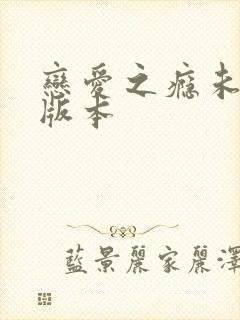 戀愛之癮未
版本
藍景麗家麗澤